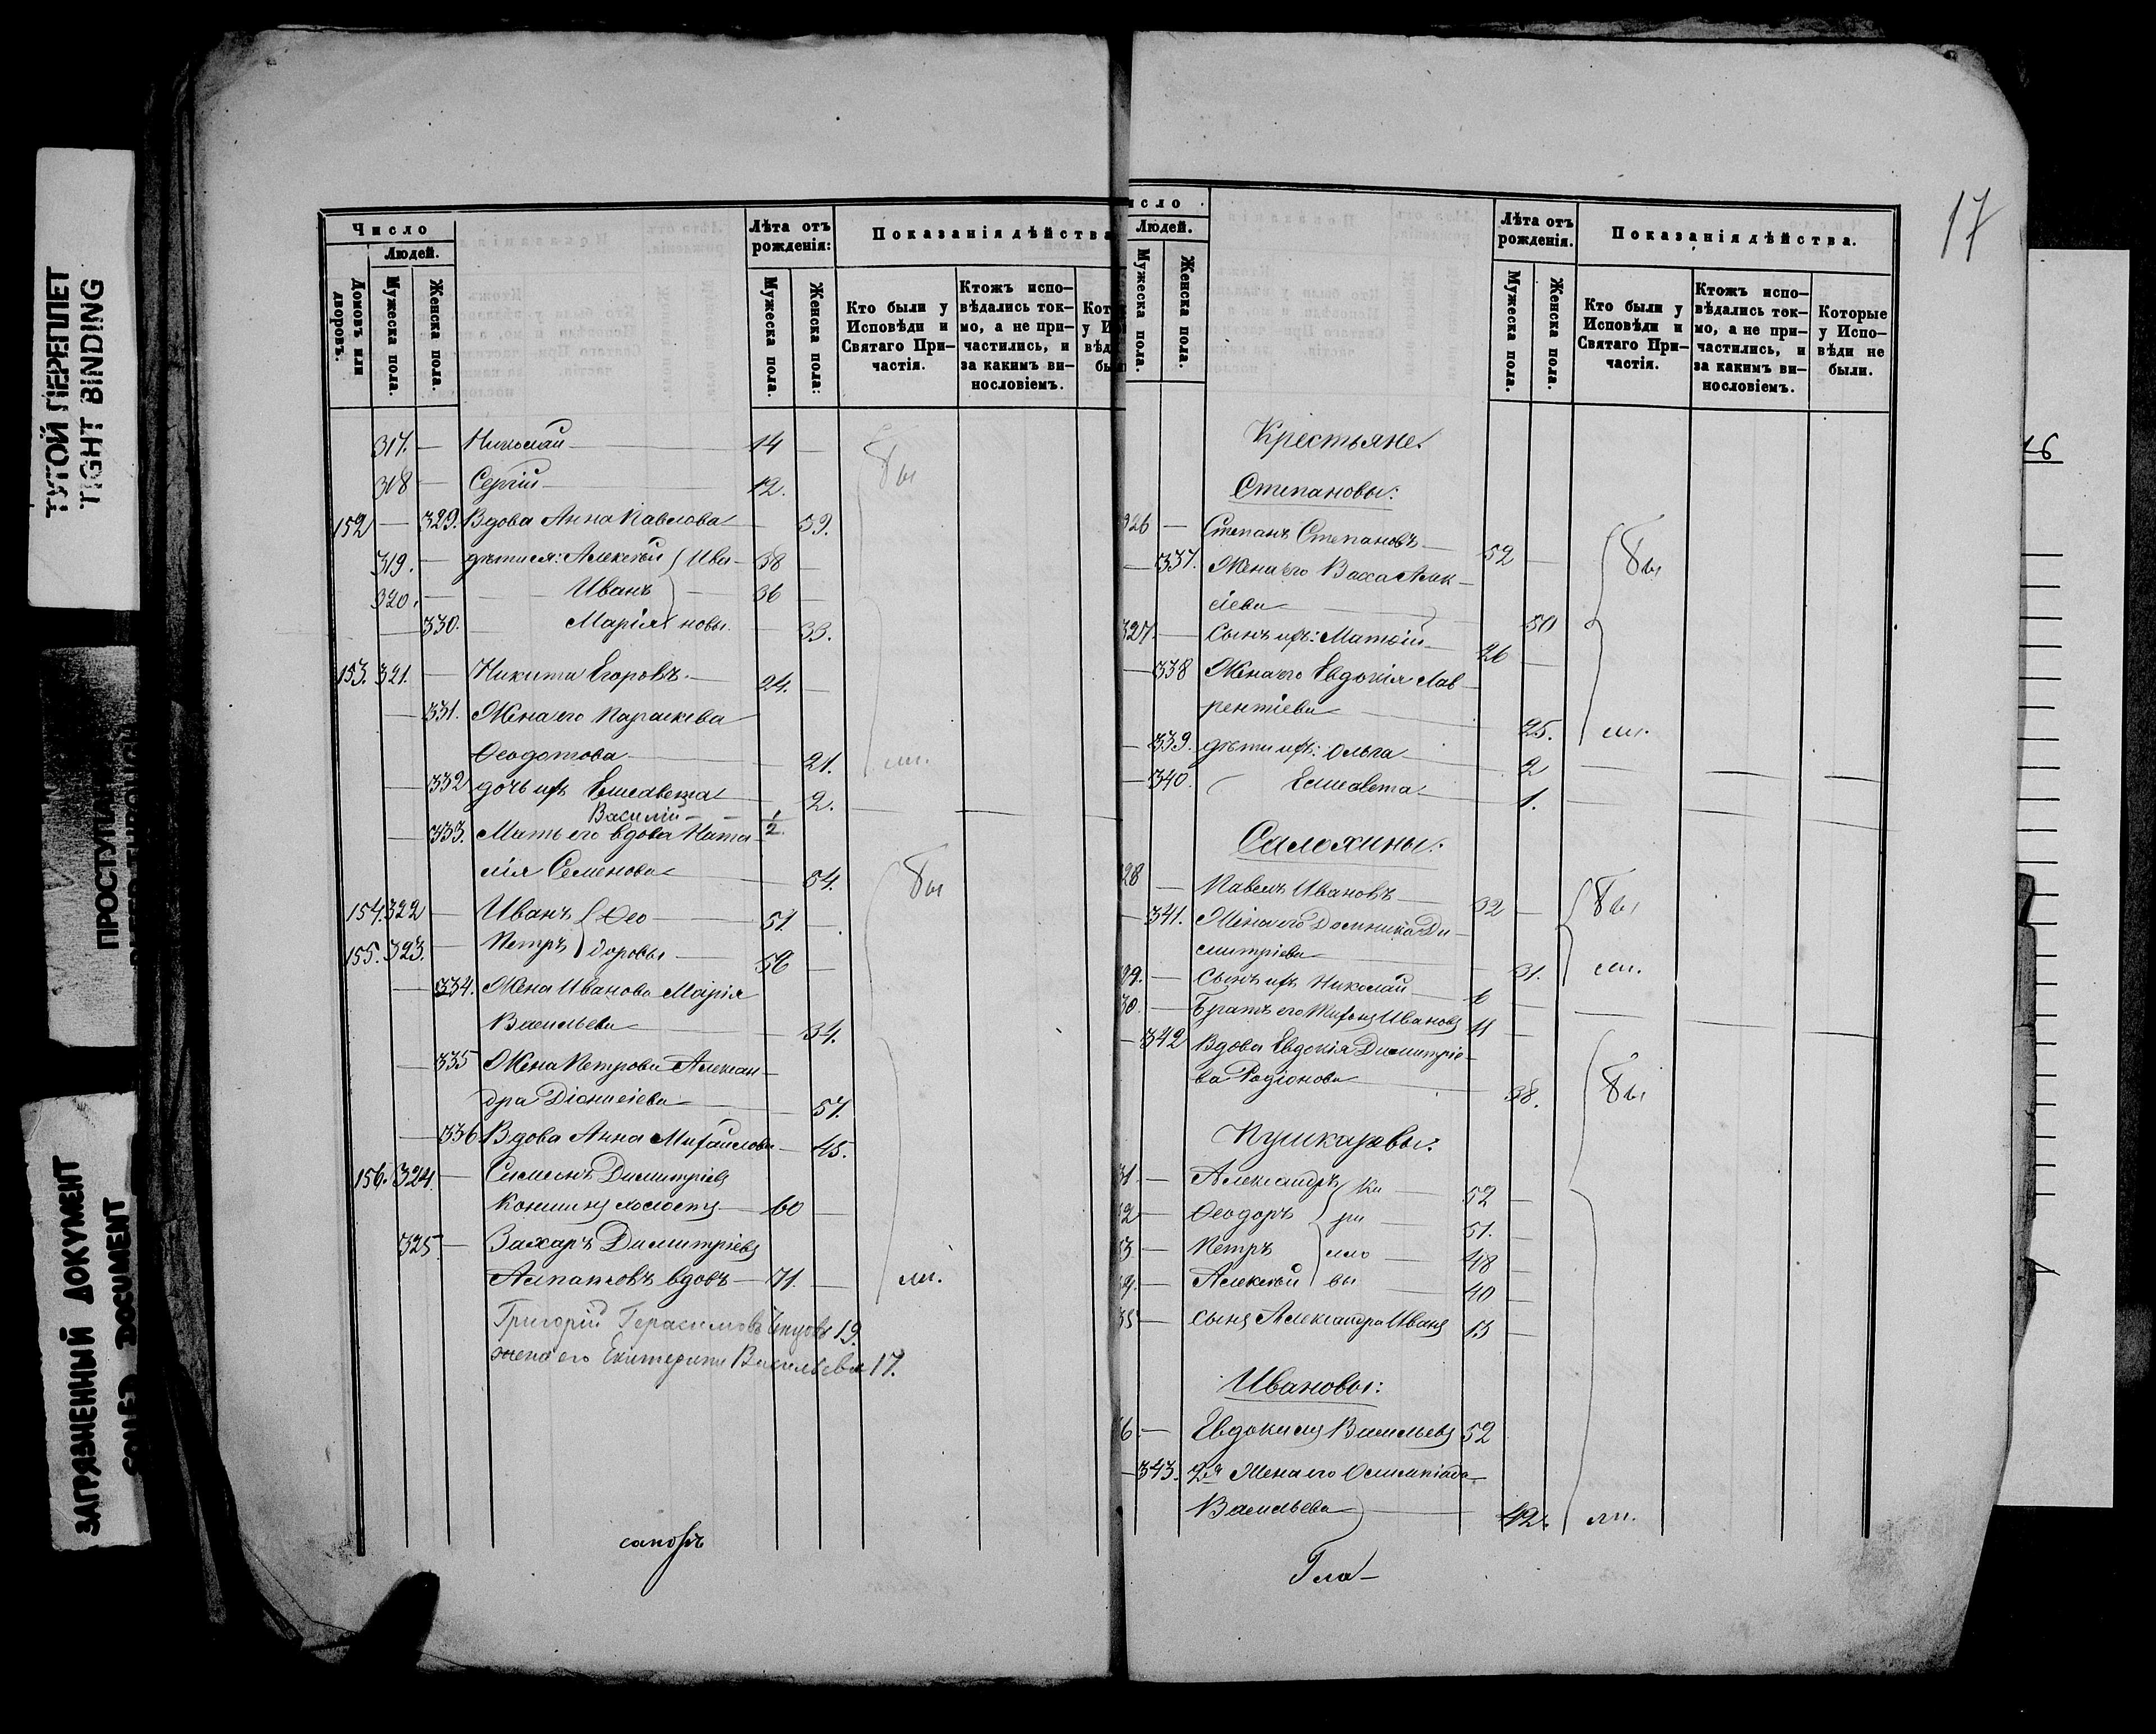 ТУГОЙ ПЕРЕПЛЕТ
TIGHT BINDING
ПРОСТУПА
ЗАГРЯЗНЕННЫЙ ДОКУМЕНТ
DOCUMENT
Число
Людей.
Домовъ или дворовъ.
Мужеска пола.
Женска пола.
Лѣта отъ рожденія:
Мужеска пола.
Женска пола:
Показанія дѣйства
Кто были у Исповѣди и Святаго Причастія.
Ктожъ исповѣдались токмо, а не причастились, и за какимъ винословіемъ.
317. — Николай — 14 —
318 — Сергій — 12.
152 — 329. Вдова Анна Павлова — 39.
319. — дѣти ея: Алексѣй { Ива- 38 —
320. — Иванъ — 36 —
— 330. Марія новы. — 33.
153. 321. — Никита Егоровъ. — 24. —
— 331. Жена его Параскева
Ѳеодотова — 21.
— 332 дочь ихъ Елисавета — 2.
Василій — 1/2.
— 333. Мать его вдова Ната-
лія Семенова — 54.
Бы
154. 322 — Иванъ { Ѳео — 51. —
155. 323. — Петръ { доровы — 56 —
— 334. Жена Иванова Марія
Васильева — 34.
— 335 Жена Петрова Алексан-
дра Діонисіева — 57.
— 336. Вдова Анна Михайлова — 45.
156. 324. — Симеонъ Димитріевъ
холостъ — 60 —
325. — Захаръ Димитріевъ
вдовъ — 71. — ли.
Григорій Герасимовъ 19.
жена его Екатерина Васильева 17.
сапожъ
17
Людей.
Мужеска пола.
Женска пола.
Лѣта отъ рожденія.
Мужеска пола.
Женска пола.
Показанія дѣйства.
Кто были у Исповѣди и Святаго Причастія.
Ктожъ исповѣдались токмо, а не причастились, и за какимъ винословіемъ.
Которые у Исповѣди не были.
Крестьяне.
Степановы:
326 — Степанъ Степановъ — 52 — Бы
— 337. Жена его Васса Алек-
сіева — 50
327. — Сынъ ихъ: Матѳій — 26 —
— 338 Жена его Евдокія Лав-
рентіева — 25. ли.
— 339. дѣти ихъ: Ольга — 2
— 340. Елисавета — 1.
Салохины:
28 — Павелъ Ивановъ — 32 — Бы
— 341. Жена его Домника Ди-
митріева — 31. ли.
29. — Сынъ ихъ Николай — 6 —
30. — Братъ его Ивановъ 11 —
— 342 Вдова Евдокія Димитріе-
ва Родіонова — 38. Бы
Пушкаревы:
31. — Александръ { Ки — 52 —
32 — Ѳеодоръ { ри — 51. —
33 — Петръ { лло — 48 —
— Алексѣй { вы — 40 —
35 — сынъ Александра Иванъ 13 —
Ивановы:
6. — Евдокимъ Васильевъ 52
— 343. 2я Жена его Олимпіада
Васильева — 42. ли.
Гла-
16